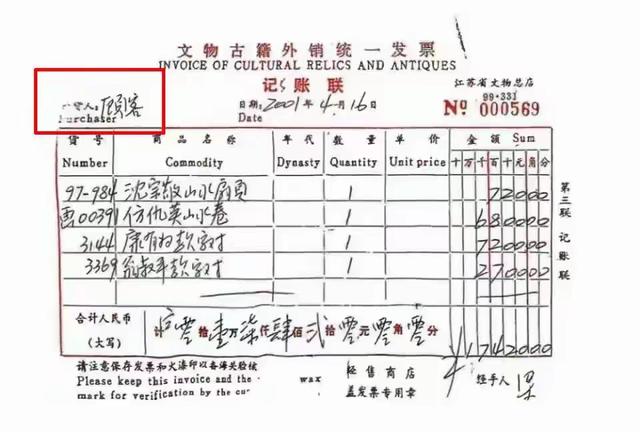 文物古籍外销统一发票
INVOICE OF CULTURAL RELICS AND ANTIQUES
记账联
江苏省文物总店
99·331
购货人:顾客
Purchaser
日期:2001年4月16
Date
No 000569
货号 商品名称 年代 数量 单价 金额 Sum
Number Commodity Dynasty Quantity Unit price 十万千百十元角分
97-984 沈宗敬山水扇页 1 72000
画00391 仿仇英山水卷 1 680000
3144 康有为款字对 1 720000
3369 翁叔平款字对 1 270000
合计人民币
(大写)
计 零拾壹万柒仟肆佰贰拾零元零角零分
¥1742000
第三联 记账联
请注意保存发票和火漆印以备海关验核
Please keep this invoice and the wax
mark for verification by the cu
经售商店
盖发票专用章
经手人